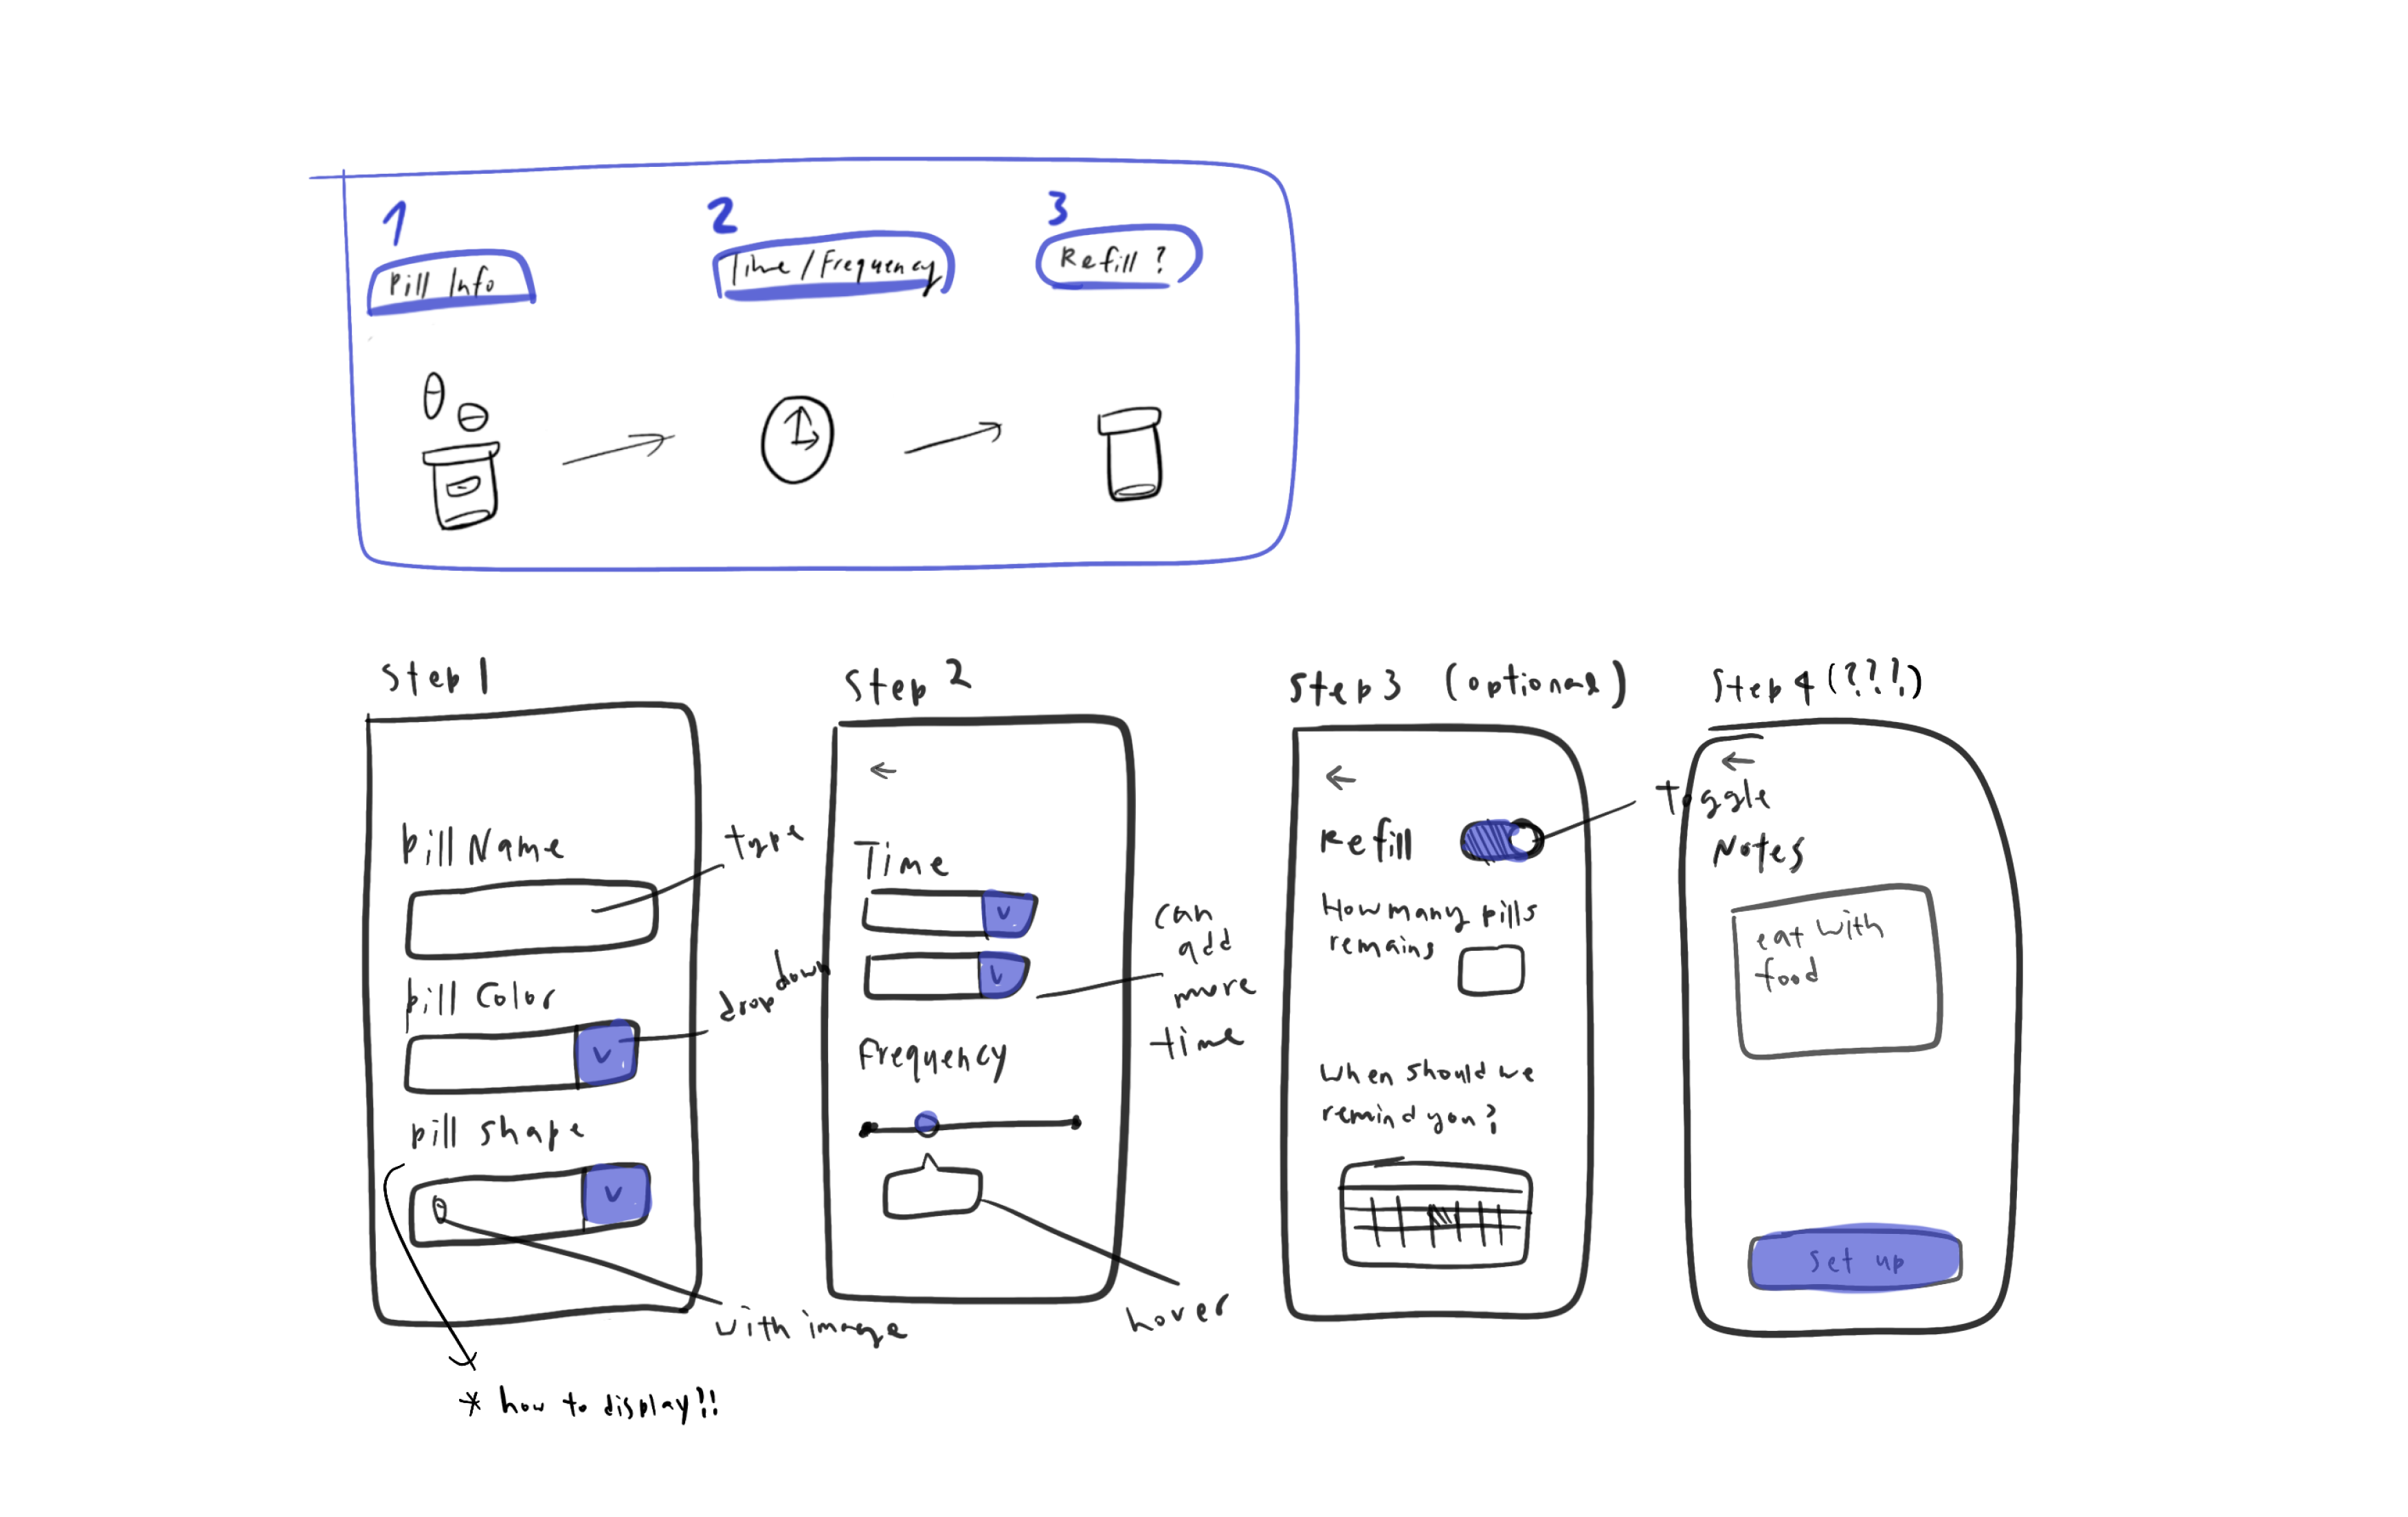 1
Pill Info
2
Time/Frequency
3
Refill?
Step 1
Pill Name
type
Pill Color
drop down
pill shape
with image
* how to display!!
Step 2
Time
can
add
more
time
Frequency
hover
Step 3 (optional)
Refill
toggle
How many pills
remains
When should we
remind you?
Step 4 (???)
Notes
eat with
food
set up